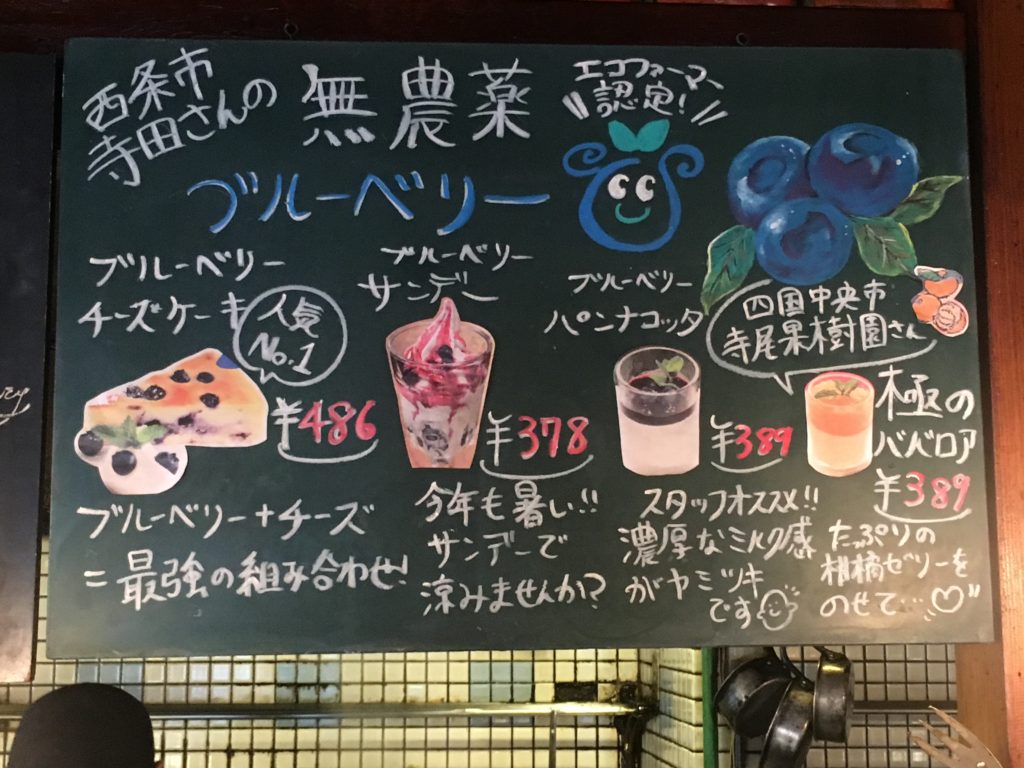 西条市
寺田さんの
無農薬
エコファーマー
認定!
ブルーベリー
ブルーベリー
チーズケーキ
人気
No.1
¥486
ブルーベリー+チーズ
=最強の組み合わせ!
ブルーベリー
サンデー
¥378
今年も暑い!!
サンデーで
涼みませんか?
ブルーベリー
パンナコッタ
¥389
スタッフオススメ!!
濃厚なミルク感
がヤミツキ
です
四国中央市
寺尾果樹園さん
極の
ババロア
¥389
たっぷりの
柑橘ゼリーを
のせて…♡"